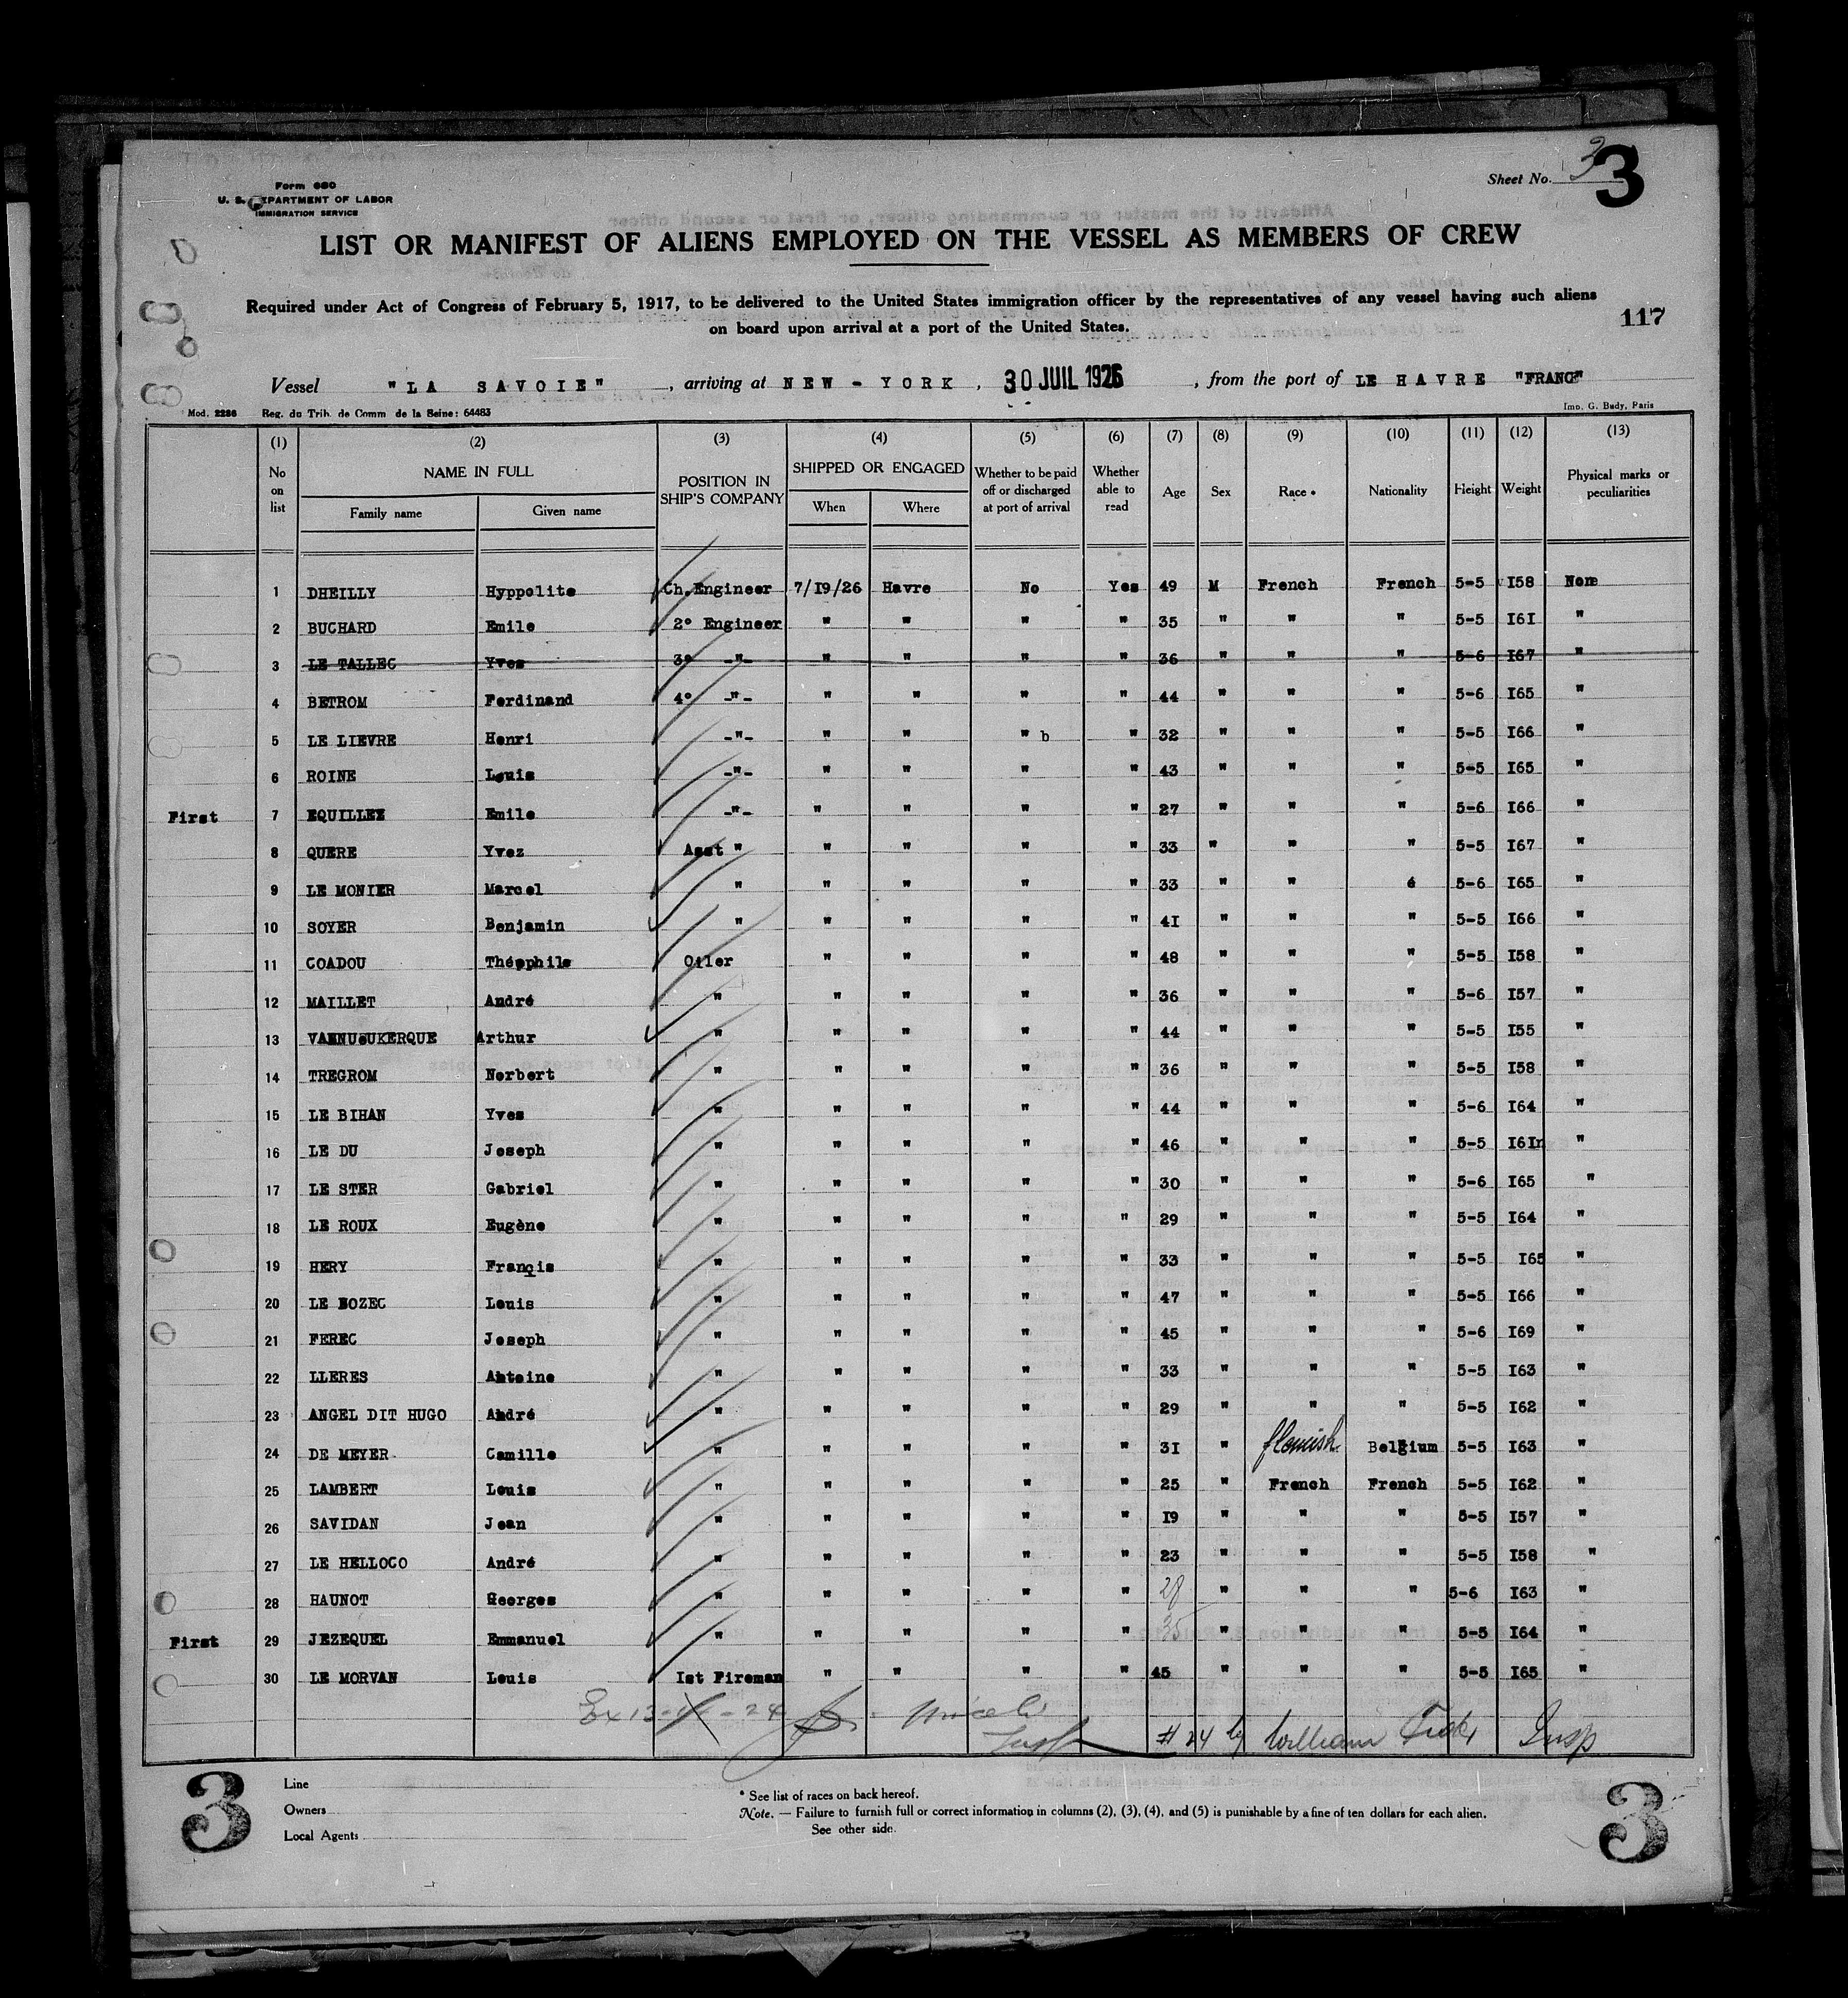 Form 680
U. S. DEPARTMENT OF LABOR
IMMIGRATION SERVICE
Sheet No. 3 3
LIST OR MANIFEST OF ALIENS EMPLOYED ON THE VESSEL AS MEMBERS OF CREW
Required under Act of Congress of February 5, 1917, to be delivered to the United States immigration officer by the representatives of any vessel having such aliens
on board upon arrival at a port of the United States.
117
Vessel "LA SAVOIE", arriving at NEW-YORK, 30 JUIL 1926, from the port of LE HAVRE "FRANCE"
Mod. 2286 Reg. du Trib. de Comm de la Seine: 64483 Imp. G. Budy, Paris
(1) (2) (3) (4) (5) (6) (7) (8) (9) (10) (11) (12) (13)
No on list NAME IN FULL Family name Given name POSITION IN SHIP'S COMPANY SHIPPED OR ENGAGED When Where Whether to be paid off or discharged at port of arrival Whether able to read Age Sex Race * Nationality Height Weight Physical marks or peculiarities
1 DHEILLY Hyppolite Ch.Engineer 7/I9/26 Havre No Yes 49 M French French 5-5 I58 None
2 BUCHARD Emile 2° Engineer " " " " 35 " " " 5-5 I6I "
3 LE TALLEC Yves 3° -"- " " " " 36 " " " 5-6 I67 "
4 BETROM Ferdinand 4° -"- " " " " 44 " " " 5-6 I65 "
5 LE LIEVRE Henri -"- " " " b " 32 " " " 5-5 I66 "
6 ROINE Louis -"- " " " " 43 " " " 5-5 I65 "
First 7 EQUILLEZ Emile -"- " " " " 27 " " " 5-6 I66 "
8 QUERE Yvez Asst " " " " " 33 " " " 5-5 I67 "
9 LE MONIER Marcel " " " " " 33 " " 5-6 I65 "
10 SOYER Benjamin " " " " " 4I " " " 5-5 I66 "
11 COADOU Théophile Oiler " " " " 48 " " " 5-5 I58 "
12 MAILLET André " " " " " 36 " " " 5-6 I57 "
13 VANNUSUKERQUE Arthur " " " " " 44 " " " 5-5 I55 "
14 TREGROM Norbert " " " " " 36 " " " 5-5 I58 "
15 LE BIHAN Yves " " " " " 44 " " " 5-6 I64 "
16 LE DU Joseph " " " " " 46 " " " 5-5 I6In "
17 LE STER Gabriel " " " " " 30 " " " 5-6 I65 "
18 LE ROUX Eugène " " " " " 29 " " " 5-5 I64 "
19 HERY Françis " " " " " 33 " " " 5-5 I65 "
20 LE BOZEC Louis " " " " " 47 " " " 5-5 I66 "
21 FEREC Joseph " " " " " 45 " " " 5-6 I69 "
22 LLERES Antoine " " " " " 33 " " " 5-5 I63 "
23 ANGEL DIT HUGO André " " " " " 29 " " " 5-5 I62 "
24 DE MEYER Camille " " " " " 3I " flemish Belgium 5-5 I63 "
25 LAMBERT Louis " " " " " 25 " French French 5-5 I62 "
26 SAVIDAN Jean " " " " " I9 " " " 5-5 I57 "
27 LE HELLOCO André " " " " " 23 " " " 5-5 I58 "
28 HAUNOT Georges " " " " " 28 " " " 5-6 I63 "
First 29 JEZEQUEL Emmanuel " " " " " 35 " " " 5-5 I64 "
30 LE MORVAN Louis Ist Fireman " " " " 45 " " " 5-5 I65 "
# 24 by William Insp
3 3
Line
Owners
Local Agents
* See list of races on back hereof.
Note. — Failure to furnish full or correct information in columns (2), (3), (4), and (5) is punishable by a fine of ten dollars for each alien.
See other side.